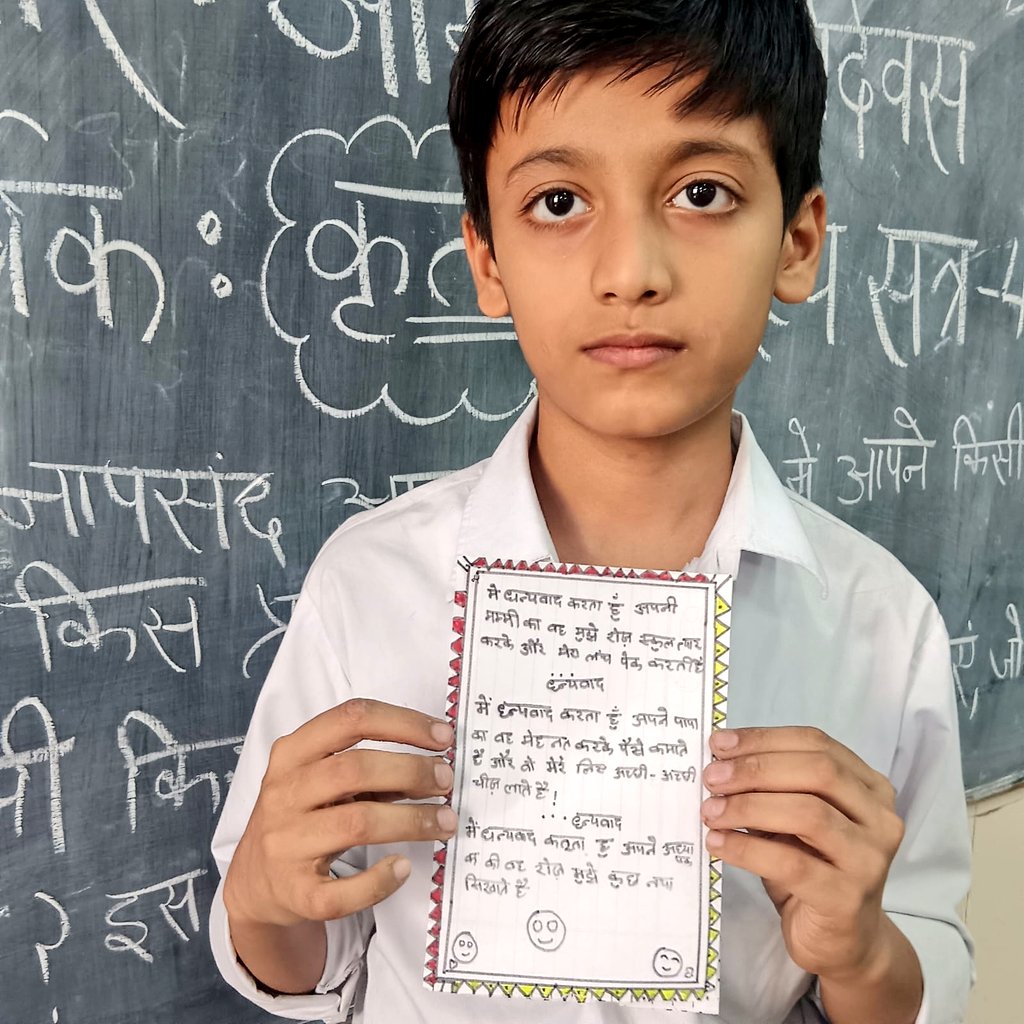 देवस
क :
कृत
सत्र-4
नापसंद
में आपने किसी
किस
एं जो
की कि
२ इस
मे धन्यवाद करता हूँ अपनी
मम्मी का वह मुझे रोज़ स्कुल त्यार
करके और मेरा लंच पेक करती है
धन्यवाद
में धन्यवाद करता हूँ अपने पापा
का वह मेहनत करके पैसे कमाते
है और वो मेरे लिए अच्छी-अच्छी
चीज़ लाते है!
... धन्यवाद
में धन्यवाद करता हूँ अपने अध्या
पक
का की वह रोज़ मुझे कुछ नया
सिखाते है